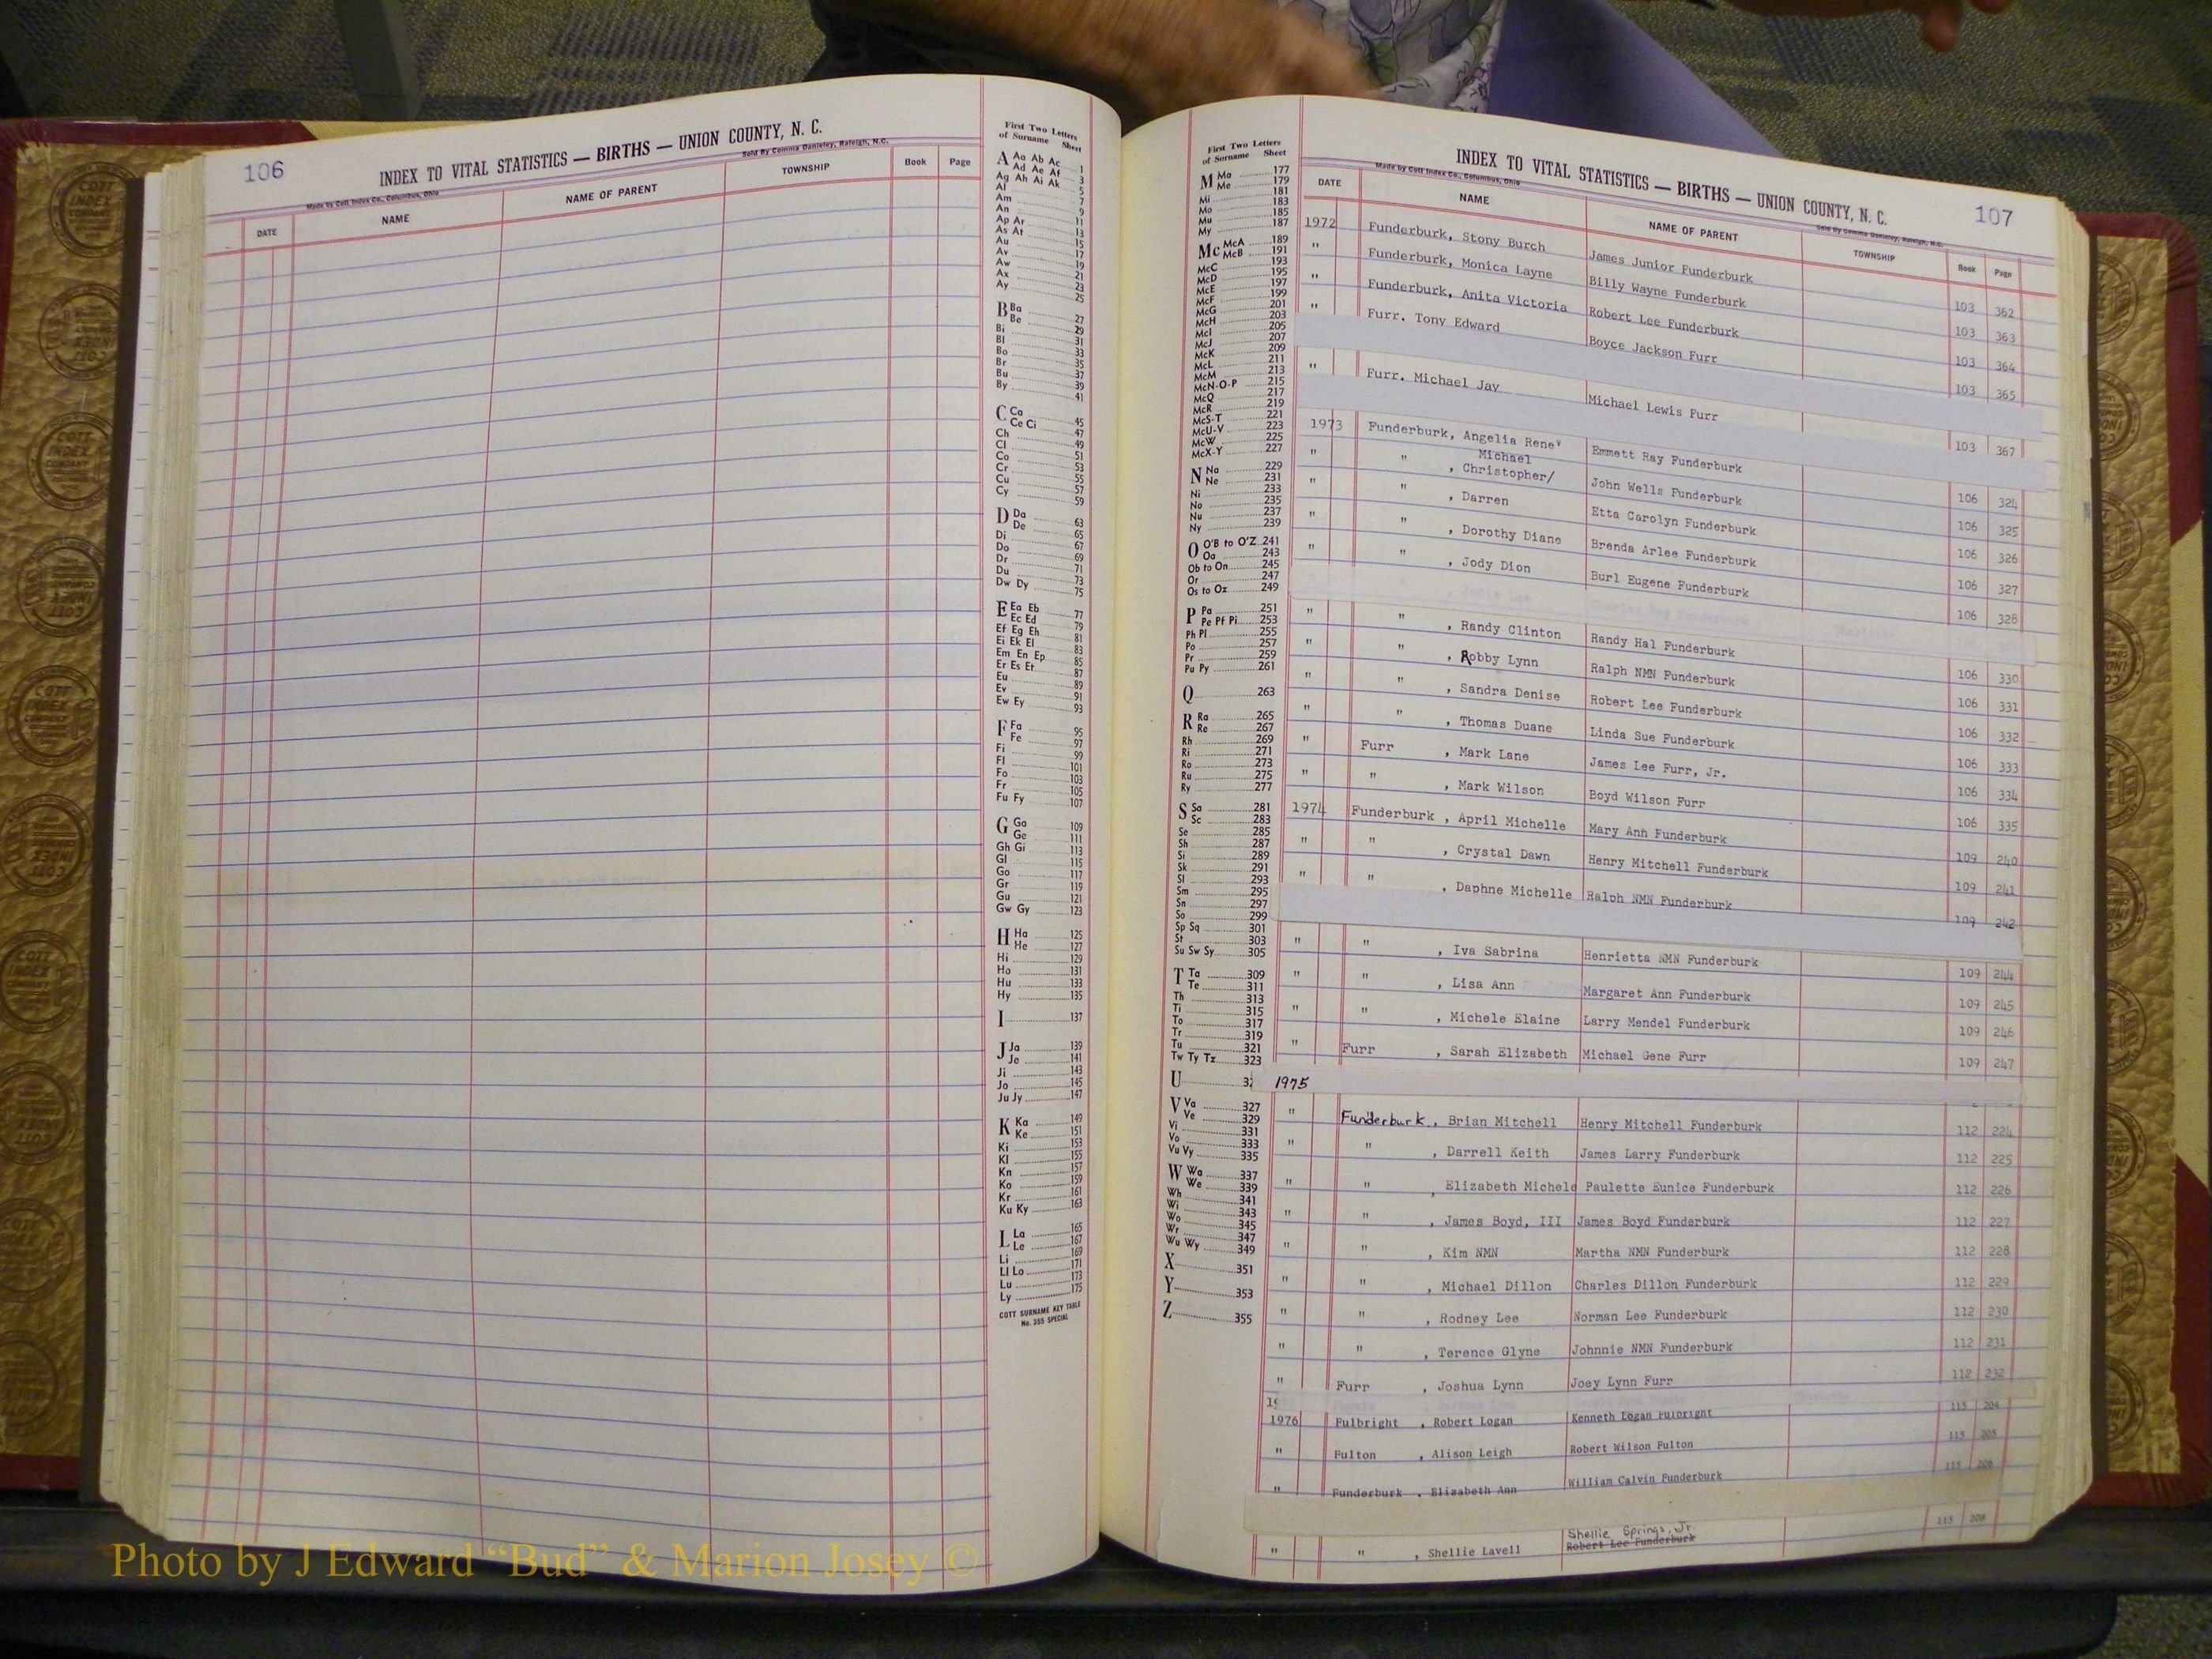 106
INDEX TO VITAL STATISTICS — BIRTHS — UNION COUNTY, N. C.
Made by Cott Index Co., Columbus, Ohio
Sold By Comma Danieley, Raleigh, N.C.
DATE NAME NAME OF PARENT TOWNSHIP Book Page
First Two Letters
of Surname Sheet
A Aa Ab Ac 1
Ad Ae Af 3
Ag Ah Ai Ak 5
Al 7
Am 9
An 11
Ap Ar 13
As At 15
Au 17
Av 19
Aw 21
Ax 23
Ay 25
B Ba 27
Be 29
Bi 31
Bl 33
Bo 35
Br 37
Bu 39
By 41
C Ca 45
Ce Ci 47
Ch 49
Cl 51
Co 53
Cr 55
Cu 57
Cy 59
D Da 63
De 65
Di 67
Do 69
Dr 71
Du 73
Dw Dy 75
E Ea Eb 77
Ec Ed 79
Ef Eg Eh 81
Ei Ek El 83
Em En Ep 85
Er Es Et 87
Eu 89
Ev 91
Ew Ey 93
F Fa 95
Fe 97
Fi 99
Fl 101
Fo 103
Fr 105
Fu Fy 107
G Ga 109
Ge 111
Gh Gi 113
Gl 115
Go 117
Gr 119
Gu 121
Gw Gy 123
H Ha 125
He 127
Hi 129
Ho 131
Hu 133
Hy 135
I 137
J Ja 139
Je 141
Ji 143
Jo 145
Ju Jy 147
K Ka 149
Ke 151
Ki 153
Kl 155
Kn 157
Ko 159
Kr 161
Ku Ky 163
L La 165
Le 167
Li 169
Ll Lo 171
Lu 173
Ly 175
COTT SURNAME KEY TABLE
No. 355 SPECIAL
First Two Letters
of Surname Sheet
M Ma 177
Me 179
Mi 181
Mo 183
Mu 185
My 187
Mc McA 189
McB 191
McC 193
McD 195
McE 197
McF 199
McG 201
McH 203
McI 205
McJ 207
McK 209
McL 211
McM 213
McN-O-P 215
McQ 217
McR 219
McS-T 221
McU-V 223
McW 225
McX-Y 227
N Na 229
Ne 231
Ni 233
No 235
Nu 237
Ny 239
O O'B to O'Z 241
Oa 243
Ob to On 245
Or 247
Os to Oz 249
P Pa 251
Pe Pf Pi 253
Ph Pl 255
Po 257
Pr 259
Pu Py 261
Q 263
R Ra 265
Re 267
Rh 269
Ri 271
Ro 273
Ru 275
Ry 277
S Sa 281
Sc 283
Se 285
Sh 287
Si 289
Sk 291
Sl 293
Sm 295
Sn 297
So 299
Sp Sq 301
St 303
Su Sw Sy 305
T Ta 309
Te 311
Th 313
Ti 315
To 317
Tr 319
Tu 321
Tw Ty Tz 323
U
V Va 327
Ve 329
Vi 331
Vo 333
Vu Vy 335
W Wa 337
We 339
Wh 341
Wi 343
Wo 345
Wr 347
Wu Wy 349
X 351
Y 353
Z 355
INDEX TO VITAL STATISTICS — BIRTHS — UNION COUNTY, N. C.
107
Made by Cott Index Co., Columbus, Ohio
Sold By Comma Danieley, Raleigh, N.C.
DATE NAME NAME OF PARENT TOWNSHIP Book Page
1972 Funderburk, Stony Burch James Junior Funderburk 103 362
" Funderburk, Monica Layne Billy Wayne Funderburk 103 363
" Funderburk, Anita Victoria Robert Lee Funderburk 103 364
" Furr. Tony Edward Boyce Jackson Furr 103 365
" Furr. Michael Jay Michael Lewis Furr 103 367
1973 Funderburk, Angelia Rene' Emmett Ray Funderburk 106 324
Michael
" " , Christopher/ John Wells Funderburk 106 325
" " , Darren Etta Carolyn Funderburk 106 326
" " , Dorothy Diane Brenda Arlee Funderburk 106 327
" " , Jody Dion Burl Eugene Funderburk 106 328
" " , Randy Clinton Randy Hal Funderburk 106 330
" " , Robby Lynn Ralph NMN Funderburk 106 331
" " , Sandra Denise Robert Lee Funderburk 106 332
" " , Thomas Duane Linda Sue Funderburk 106 333
" Furr , Mark Lane James Lee Furr, Jr. 106 334
" " , Mark Wilson Boyd Wilson Furr 106 335
1974 Funderburk , April Michelle Mary Ann Funderburk 109 240
" " , Crystal Dawn Henry Mitchell Funderburk 109 241
" " , Daphne Michelle Ralph NMN Funderburk 109 242
" " , Iva Sabrina Henrietta NMN Funderburk 109 244
" " , Lisa Ann Margaret Ann Funderburk 109 245
" " , Michele Elaine Larry Mendel Funderburk 109 246
" Furr , Sarah Elizabeth Michael Gene Furr 109 247
1975
" Funderburk , Brian Mitchell Henry Mitchell Funderburk 112 224
" " , Darrell Keith James Larry Funderburk 112 225
" " , Elizabeth Michele Paulette Eunice Funderburk 112 226
" " , James Boyd, III James Boyd Funderburk 112 227
" " , Kim NMN Martha NMN Funderburk 112 228
" " , Michael Dillon Charles Dillon Funderburk 112 229
" " , Rodney Lee Norman Lee Funderburk 112 230
" " , Terence Glyne Johnnie NMN Funderburk 112 231
" Furr , Joshua Lynn Joey Lynn Furr 112 232
1976 Fulbright , Robert Logan Kenneth Logan Fulbright 115 204
" Fulton , Alison Leigh Robert Wilson Fulton 115 205
" Funderburk , Elizabeth Ann William Calvin Funderburk 115 206
Shellie Springs, Jr.
" " , Shellie Lavell Robert Lee Funderburk 115 208
Photo by J Edward “Bud” & Marion Josey ©